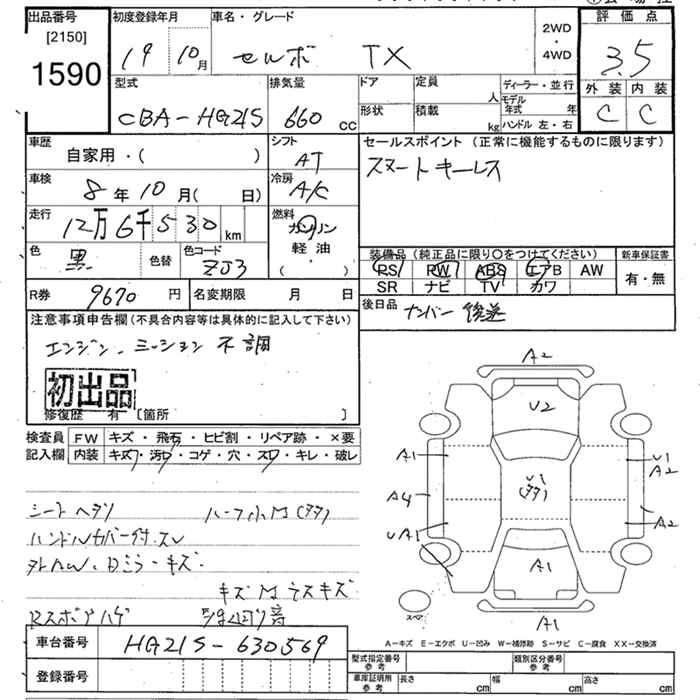 出品番号 初度登録年月 車名・グレード 2WD・4WD 評価点
[2150]
1590
19 10月 セルボ TX 3.5
型式 排気量 ドア 定員 人 ディーラー・並行 外装 内装
CBA-HG21S 660 cc 形状 積載 kg モデル年式 年 ハンドル 左・右 C C
車歴 自家用・( ) シフト AT セールスポイント (正常に機能するものに限ります)
スマートキーレス
車検 8年10月( 日) 冷房 A/C
走行 12万6千530km 燃料 ガソリン 軽油 ( )
色 黒 色替 色コード ZJ3
装備品 (純正品に限り○をつけてください) 新車保証書
PS PW ABS エアB AW 有・無
SR ナビ TV カワ
R券 9670円 名変期限 月 日 後日品 ナンバー 後送
注意事項申告欄(不具合内容等は具体的に記入して下さい)
エンジン、ミッション不調
初出品
修復歴 有 [箇所 ]
検査員 FW キズ・飛石・ヒビ割・リペア跡・×要
記入欄 内装 キズ・汚・コゲ・穴・スレ・キレ・破レ
A2
U2
A1 U1 A2
U1
A4 A2
UA1
A1
A1
スペア
シートヘタリ
ハンドルカバー付
キズ
車台番号 HG21S-630569
A-キズ E-エクボ U-凹み W-補修跡 S-サビ C-腐食 XX-交換済
型式指定番号 参考 類別区分番号 参考
登録番号 車庫証明用 参考 長さ cm 幅 cm 高さ cm